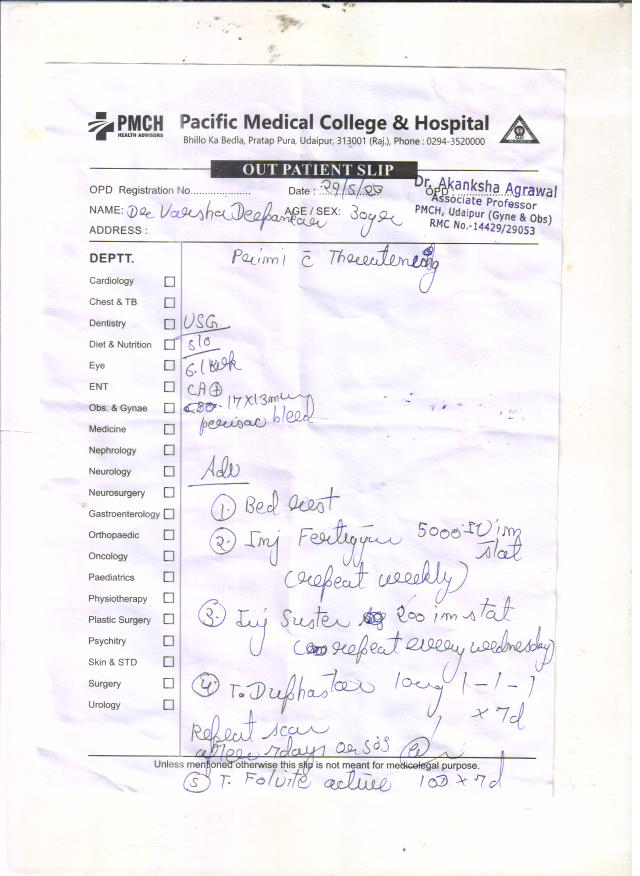 PMCH
HEALTH ADVISORS
Pacific Medical College & Hospital
Bhillo Ka Bedla, Pratap Pura, Udaipur, 313001 (Raj.), Phone : 0294-3520000
OUT PATIENT SLIP
OPD Registration No.................... Date : 29/5/23 OPD
Dr. Akanksha Agrawal
Associate Professor
PMCH, Udaipur (Gyne & Obs)
RMC No.-14429/29053
NAME: Varsha AGE / SEX: 30yr
ADDRESS :
DEPTT.
Primi c̄ Threatening
Cardiology
Chest & TB
Dentistry
USG
Diet & Nutrition
S/O
Eye
6.1 week
ENT
CA⊕
Obs. & Gynae
17x13mm
perisac bleed
Medicine
Nephrology
Neurology
Adv
Neurosurgery
① Bed rest
Gastroenterology
② Inj 5000 IU im
stat
Orthopaedic
Oncology
(repeat weekly)
Paediatrics
Physiotherapy
③ Inj Susten 200 im stat
Plastic Surgery
(repeat every wednesday)
Psychitry
Skin & STD
④ T. Duphaston 10mg 1-1-1
x 7d
Surgery
Urology
Repeat scan
after 7days or SOS
Unless mentioned otherwise this slip is not meant for medicolegal purpose.
⑤ T. Folvite active 1OD x 7d